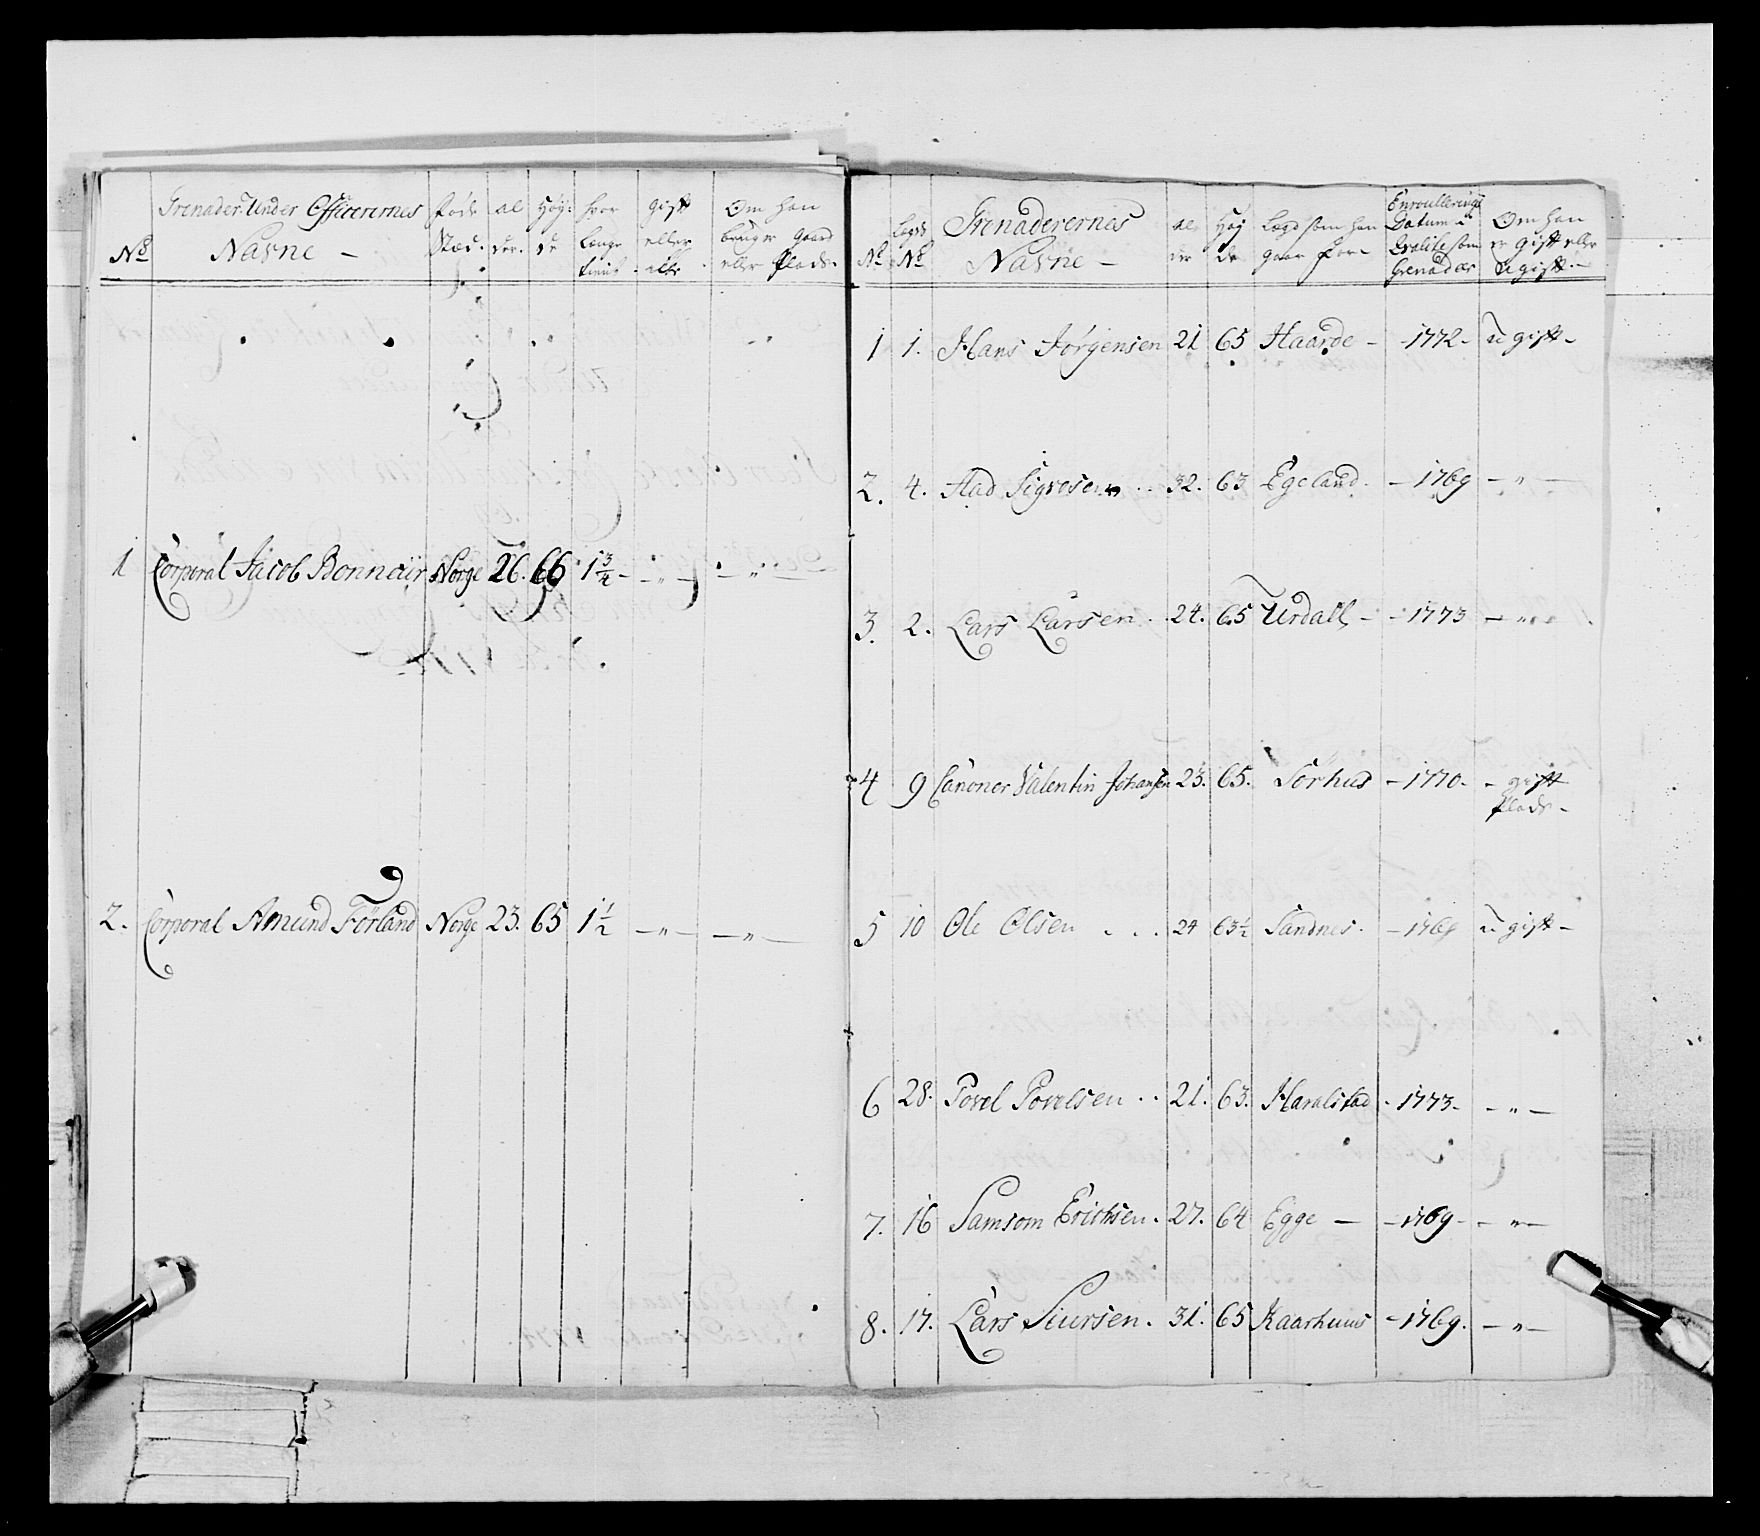 No
Grenader Under Officerernes
Nafne -
Føde
Stæd.
al
der.
Høy:
de
hvor
lenge
tient
gift
eller
eike
Om han
bruger gaard
eller Plads.
1 Corporal Jacob Bonnair Norge 26. 66 1 3/4 - - „ - - „ -
2. Corporal Amund Førland Norge 23. 65 1 1/2 - „ - - „ -
No
Legds
No
Grenaderernes
Nafne -
al
der
Høy
de
Legd som han
gaar for -
Enroullerings
Datum i
Qvalite som
Grenader
Om han
er gift eller
ugift. -
1 1. Hans Jörgensen 21 65 Haarde - - 1772 - ugift -
2. 4. Aad Sigvesen .. 32. 63 Egeland. - 1769 - „ -
3. 2. Lars Larsen . 24. 65 Urdall - - 1773 - „ -
4 9 Canoner Valentin Johansen 23. 65. Sörhus - 1770 - - gift
Plads -
5 10 Ole Olsen ... 24 63 1/2 Sandnes. - 1769 ugift -
6 28. Povel Povelsen .. 21. 63. Haralstad - 1773 - - „ -
7. 16 Samsom Erichsen . 27. 64 Egge - - 1769 - - „ -
8. 17. Lars Siursen . 31. 65 Kaarhuus - 1769. - „ -